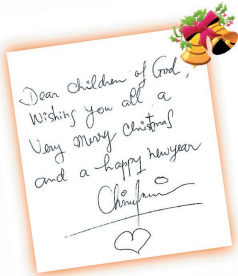 Dear children of God,
Wishing you all a
Very Merry Christmas
and a happy New year